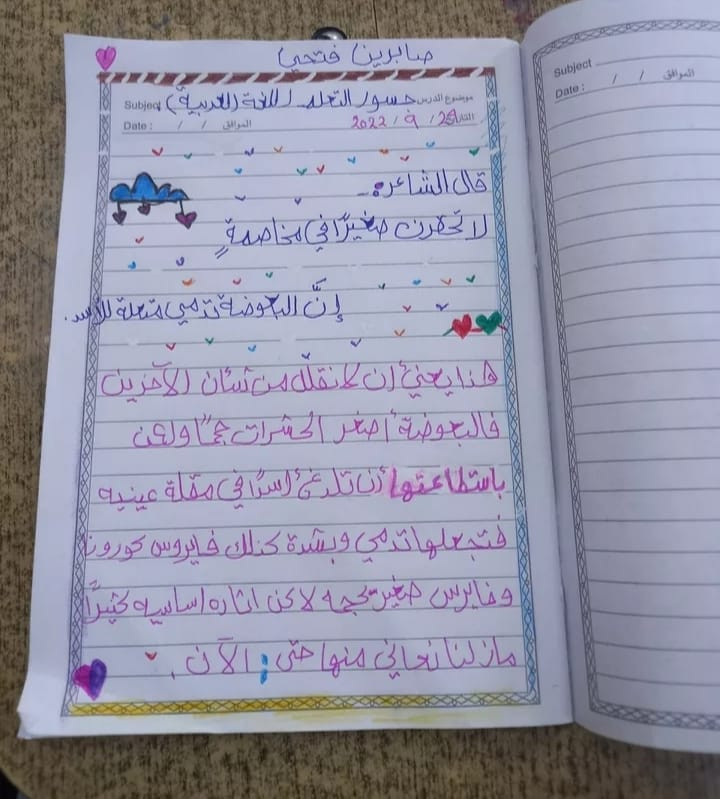 صابرين فتحي
Subject موضوع الدرس جسور التعلم (اللغة العربية)
Date : / / الموافق 2022 / 9 / 29
قال الشاعر:ـ
لا تحقرن صغيرًا في مخاصمةٍ
إنَّ البعوضة تدمي مقلة الأسد.
هذا يعني أن لا نقلل من شأن الآخرين
فالبعوضة أصغر الحشرات حجمًا ولكن
باستطاعتها أن تلدغ أسدًا في مقلة عينيه
فتجعلها تدمي وبشدة كذلك فايروس كورونا
وفايرس صغير بحجمه لاكن اثاره اساسيه كثيرًا
مازلنا نعاني منها حتى الآن .
Subject
Date : / / الموافق